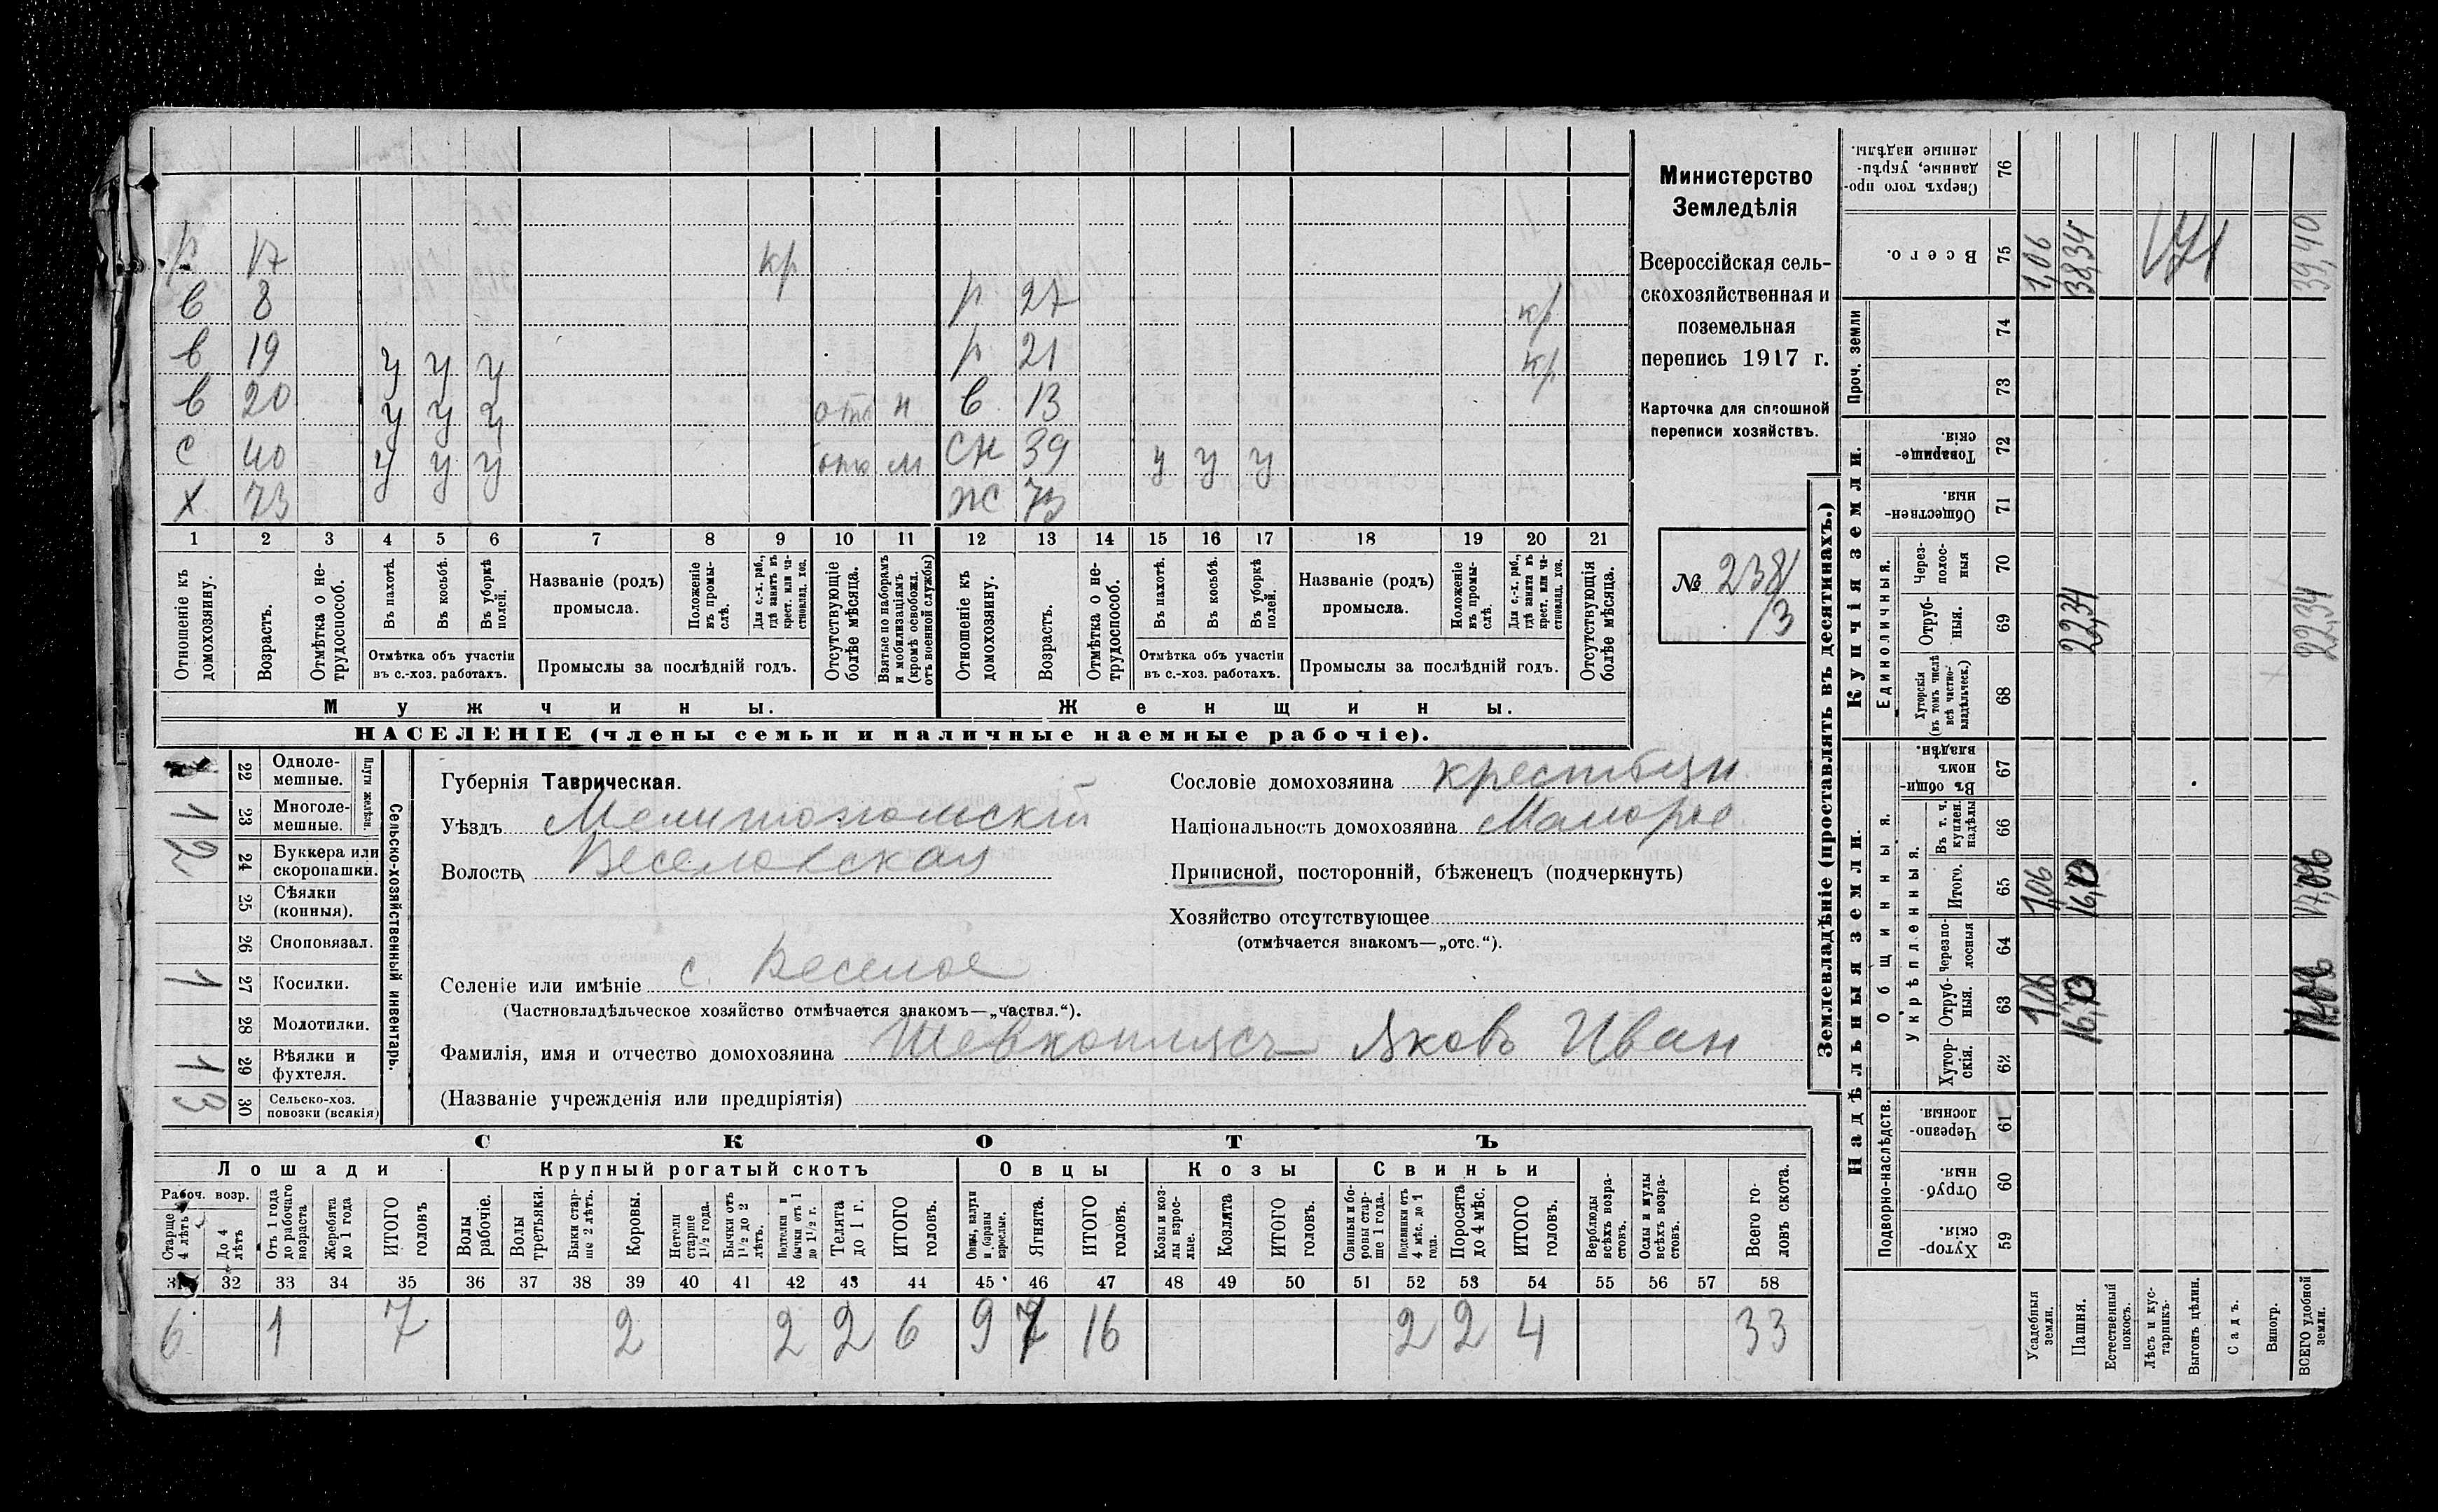 р 17 кр
в 8 р 27 кр
в 19 у у у р 21 кр
в 20 у у у отс н в 13
с 40 у у у м сн 39 у у у
х 73 ж 73
1 2 3 4 5 6 7 8 9 10 11 12 13 14 15 16 17 18 19 20 21
Отношеніе къ домохозяину.
Возрастъ.
Отмѣтка о не-трудоспособ.
Въ пахотѣ.
Въ косьбѣ.
Въ уборкѣ полей.
Отмѣтка объ участіи въ с.-хоз. работахъ.
Названіе (родъ) промысла.
Положеніе въ промы-слѣ.
Для с.-х. раб., гдѣ занятъ въ крест. или ча-стновлад. хоз.
Промыслы за послѣдній годъ.
Отсутствующіе болѣе мѣсяца.
Взятые по наборамъ и мобилизаціямъ (кромѣ освобожд. отъ военной службы)
Отношеніе къ домохозяину.
Возрастъ.
Отмѣтка о не-трудоспособ.
Въ пахотѣ.
Въ косьбѣ.
Въ уборкѣ полей.
Отмѣтка объ участіи въ с.-хоз. работахъ.
Названіе (родъ) промысла.
Положеніе въ промы-слѣ.
Для с.-х. раб., гдѣ занята въ крест. или ча-стновлад. хоз.
Промыслы за послѣдній годъ.
Отсутствующія болѣе мѣсяца.
Мужчины. Женщины.
НАСЕЛЕНІЕ (члены семьи и наличные наемные рабочіе).
Министерство
Земледѣлія
Всероссійская сель-
скохозяйственная и
поземельная
перепись 1917 г.
Карточка для сплошной
переписи хозяйствъ.
№ 2381
13
22 Одноле-мешные.
23 Многоле-мешные. 1
Плуги желѣзн.
24 Буккера или скоропашки. 2
25 Сѣялки (конныя).
26 Сноповязал.
27 Косилки. 1
28 Молотилки.
29 Вѣялки и фухтеля. 1
30 Сельско-хоз. повозки (всякія) 3
Сельско-хозяйственный инвентарь.
Губернія Таврическая.
Уѣздъ Мелитопольскій
Волость Веселовская
Сословіе домохозяина крестьян
Національность домохозяина Малорос
Приписной, посторонній, бѣженецъ (подчеркнуть)
Хозяйство отсутствующее
(отмѣчается знакомъ—„отс.“).
Селеніе или имѣніе с. Веселое
(Частновладѣльческое хозяйство отмѣчается знакомъ—„частвл.“).
Фамилія, имя и отчество домохозяина Шевкоплясъ Яковъ Иван
(Названіе учрежденія или предпріятія)
СКОТЪ
Лошади Крупный рогатый скотъ Овцы Козы Свиньи
Рабоч. возр.
Старше 4 лѣтъ
До 4 лѣтъ
Отъ 1 года до рабочаго возраста
Жеребята до 1 года
ИТОГО головъ
Волы рабочіе.
Волы третьяки.
Быки стар-ше 2 лѣтъ.
Коровы.
Нетели старше 1½ года.
Бычки отъ 1½ до 2 лѣтъ.
Подтелки и бычки отъ 1 до 1½ г.
Телята до 1 г.
ИТОГО головъ.
Овцы, валухи и бараны взрослые.
Ягнята.
ИТОГО головъ.
Козы и коз-лы взрос-лые.
Козлята
ИТОГО головъ.
Свиньи и бо-ровы стар-ше 1 года.
Подсвинки отъ 4 мѣс. до 1 года.
Поросята до 4 мѣс.
ИТОГО головъ.
Верблюды всѣхъ возра-стовъ.
Ослы и мулы всѣхъ возра-стовъ.
Всего го-ловъ скота.
31 32 33 34 35 36 37 38 39 40 41 42 43 44 45 46 47 48 49 50 51 52 53 54 55 56 57 58
6 1 7 2 2 2 6 9 7 16 2 2 4 33
Землевладѣніе (проставлять въ десятинахъ.)
Надѣльныя земли. Купчія земли.
Проч. земли
Сверхъ того про-данные, укрѣп-ленные надѣлы. 76
Всего. 75 1,06 38,34 39,40
74
73
Товарище-скія. 72
Обществен-ныя. 71
Единоличныя.
Через-полос-ныя 70
Отруб-ныя. 69 22,34 22,34
Хуторскія (въ томъ числѣ всѣ частно-владѣльческ.) 68
Общинныя.
Въ общин-номъ владѣн. 67
Укрѣпленныя.
Въ т. ч. куплен. надѣлы 66
Итого. 65 1,06
Черезпо-лосныя 64
Отруб-ныя. 63 1,06
Хутор-скія. 62
Подворно-наслѣдств.
Черезпо-лосныя. 61
Отруб-ныя. 60
Хутор-скія. 59
Усадебныя земли.
Пашня.
Естественный покосъ.
Лѣсъ и кус-тарникъ.
Выгонъ цѣлин.
Садъ.
Виногр.
ВСЕГО удобной земли.